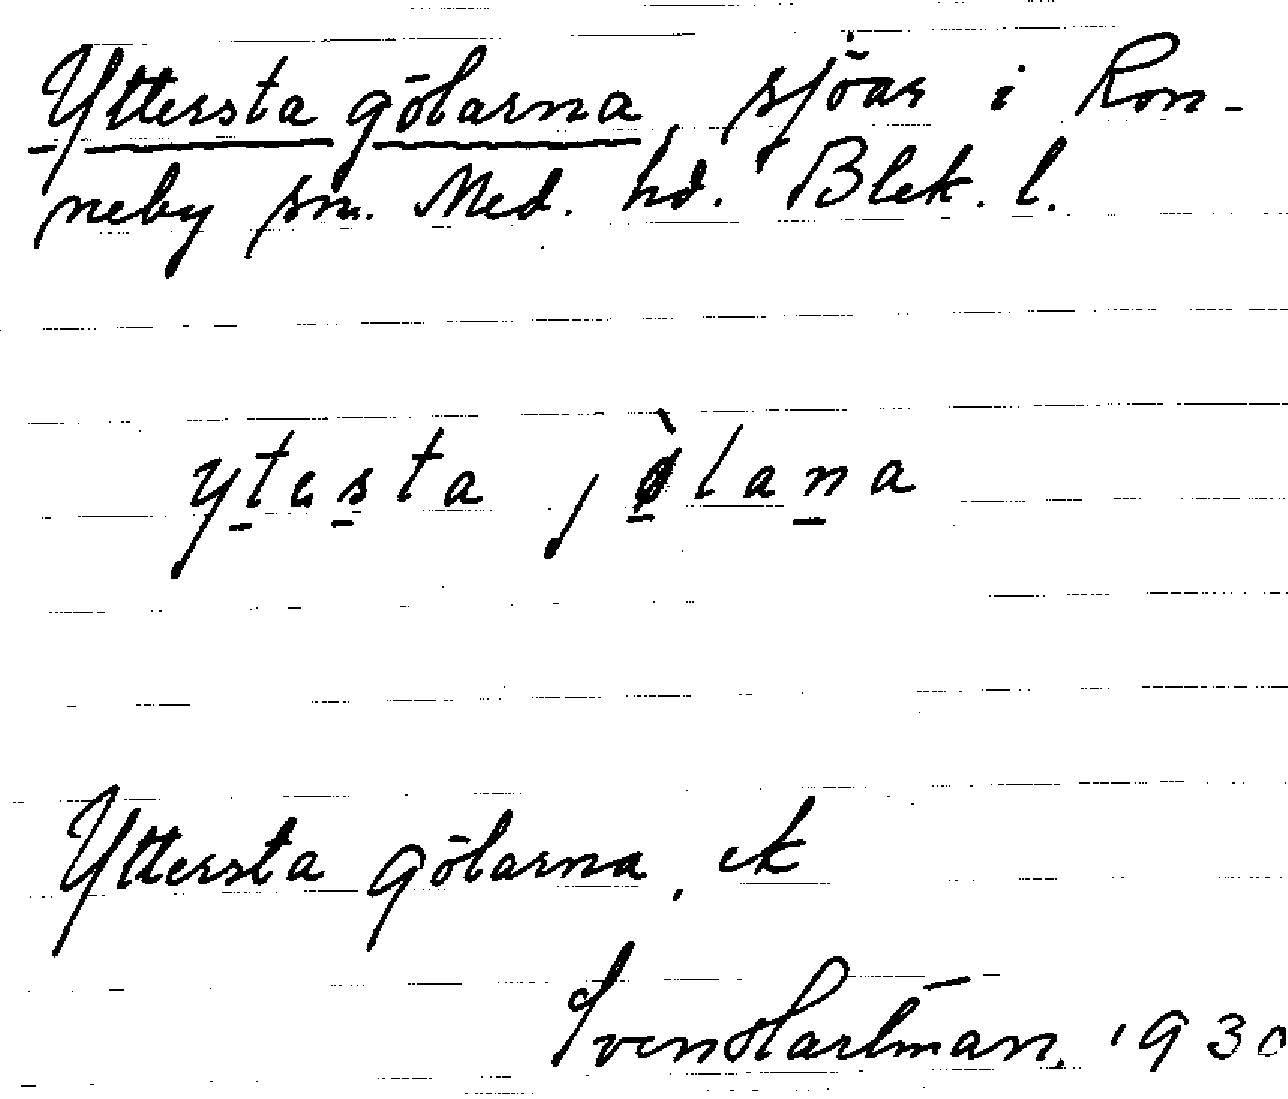 Yttersta gölarna, sjöar i Ron-
neby sn. Med. hd. Blek. l.
ytesta jòlana
Yttersta gölarna, ek
Sven Hartman. 1930